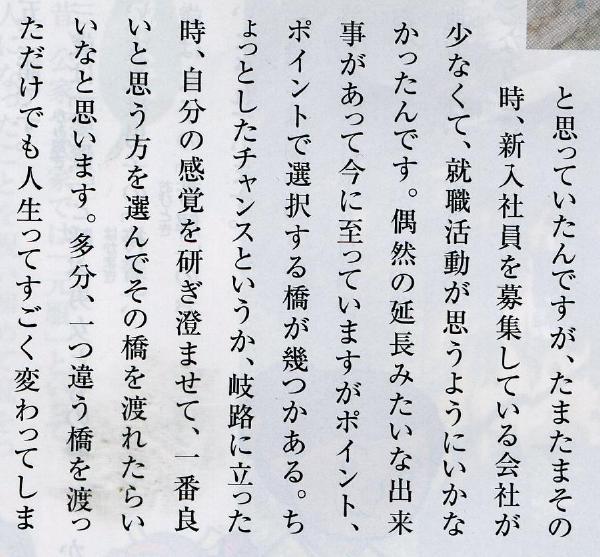 と思っていたんですが、たまたまその
時、新入社員を募集している会社が
少なくて、就職活動が思うようにいかな
かったんです。偶然の延長みたいな出来
事があって今に至っていますがポイント、
ポイントで選択する橋が幾つかある。ち
ょっとしたチャンスというか、岐路に立った
時、自分の感覚を研ぎ澄ませて、一番良
いと思う方を選んでその橋を渡れたらい
いなと思います。多分、一つ違う橋を渡っ
ただけでも人生ってすごく変わってしま